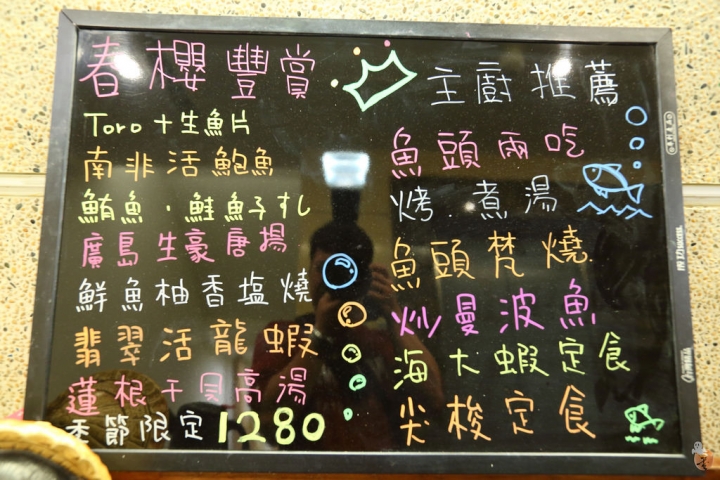 春櫻豐賞
Toro+生魚片
南非活鮑魚
鮪魚．鮭魚子札
廣島生豪唐揚
鮮魚柚香塩燒
翡翠活龍蝦
蓮根干貝高湯
季節限定1280
主廚推薦
魚頭兩吃
烤．煮湯
魚頭梵燒.
炒曼波魚
海大蝦定食
尖梭定食